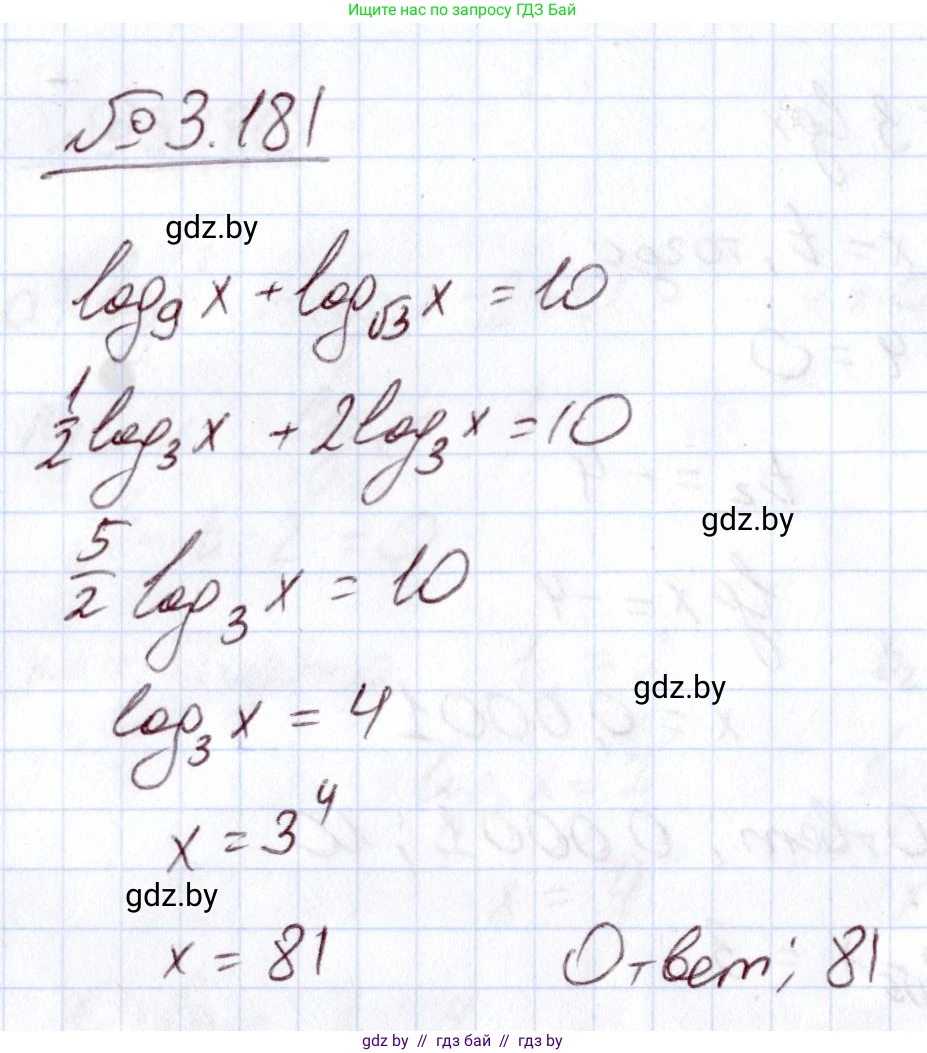 Ищите нас по запросу ГДЗ Бай
№ 3.181
gdz.by
log₉ x + log_√3 x = 10
1/2 log₃ x + 2 log₃ x = 10
gdz.by
5/2 log₃ x = 10
gdz.by
log₃ x = 4
x = 3⁴
gdz.by
x = 81 Ответ; 81
gdz by // гдз бай // гдз by